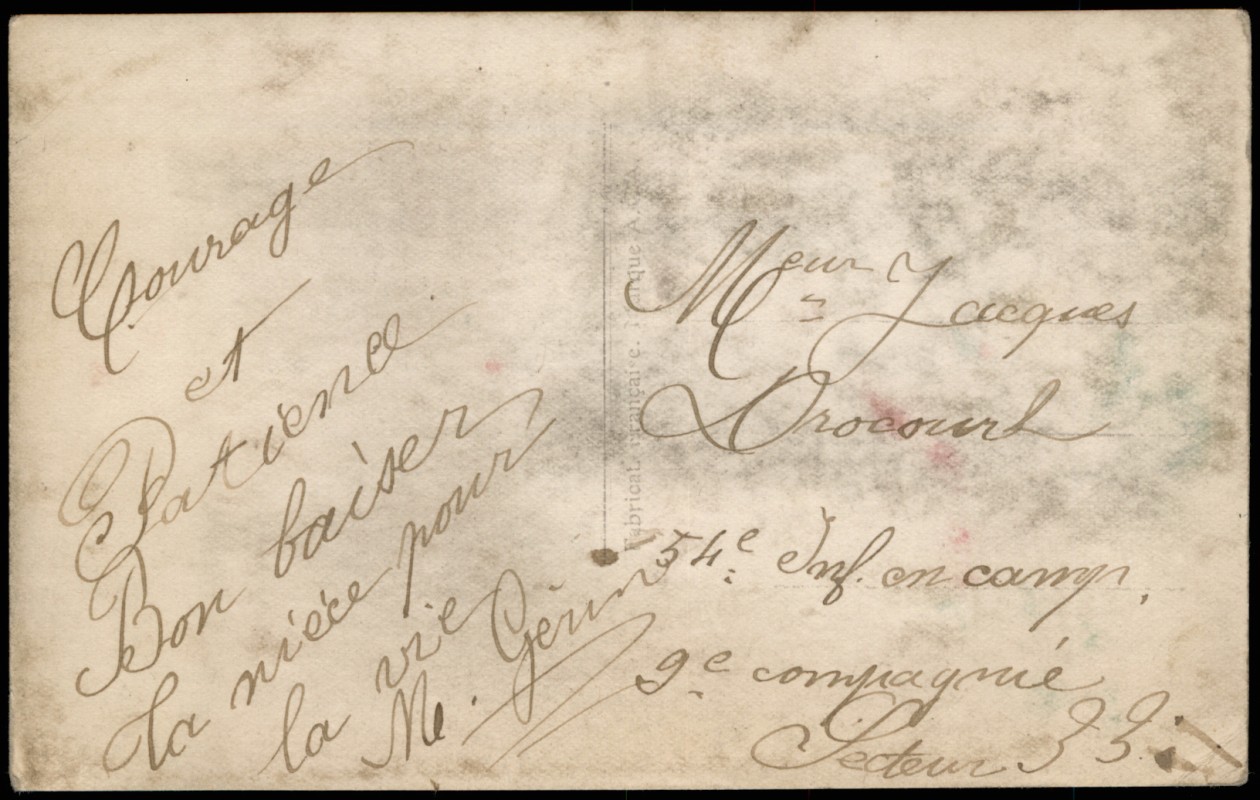 Courage
et
Patience
Bon baiser
Ta nièce pour
la vie
M. Gérin
Meur Jacques
Drocourt
54e Inf. en camp.
9e compagnié
Secteur 33.
Fabrication française.